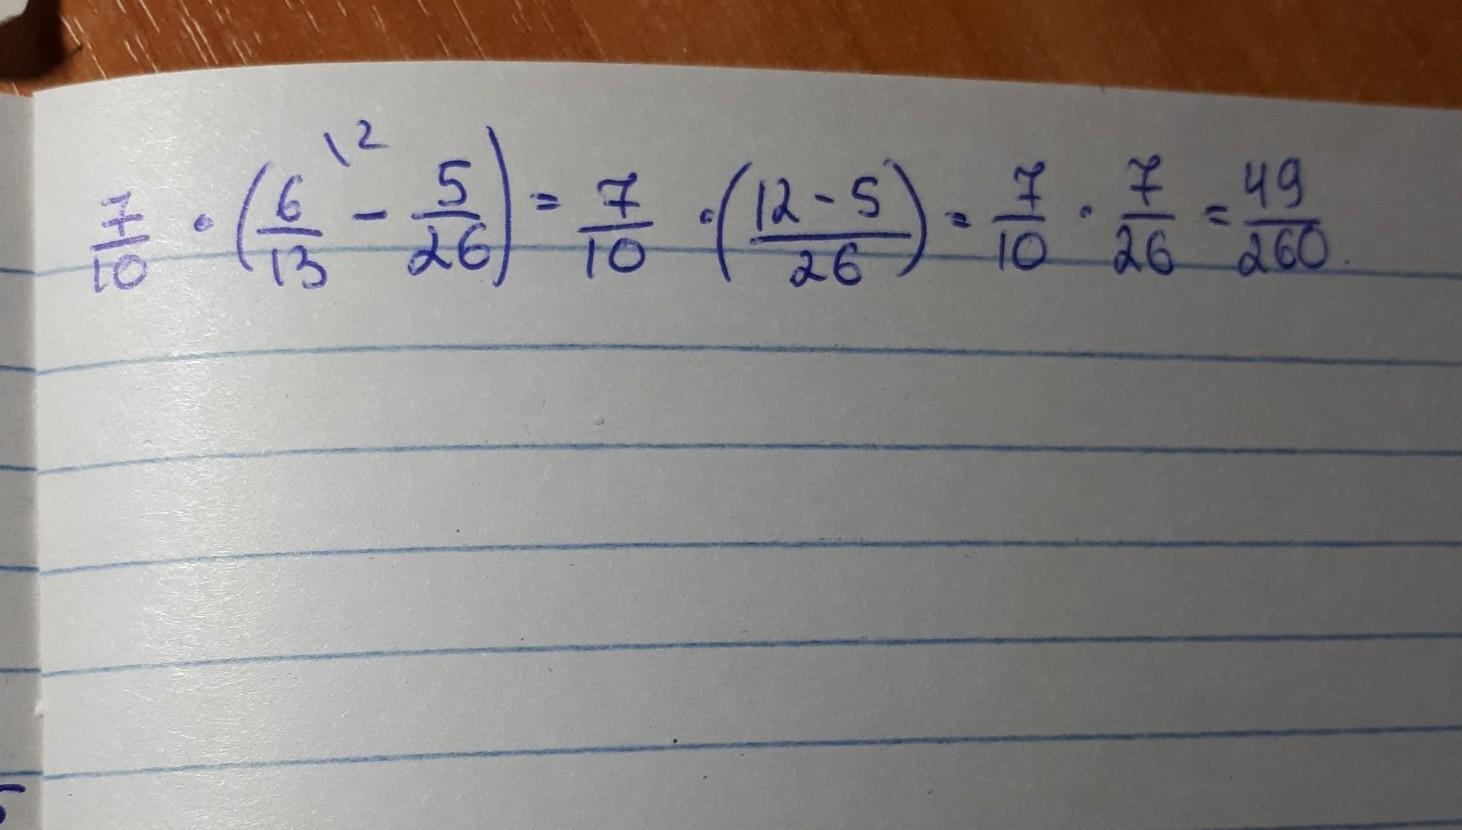 7/10 · (6/13 \2 - 5/26) = 7/10 · (12-5/26) = 7/10 · 7/26 = 49/260.